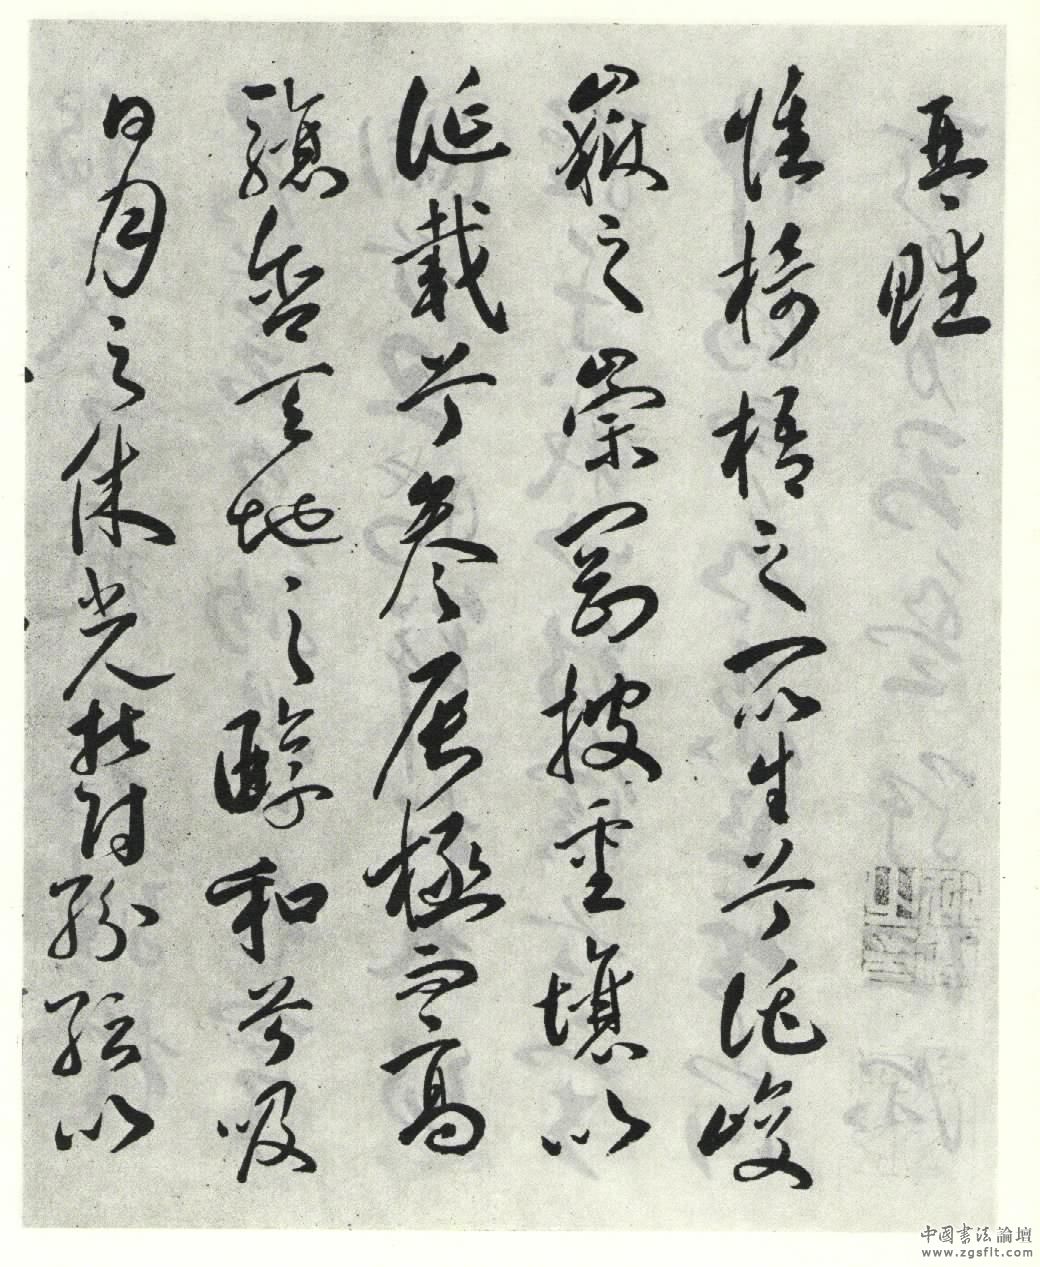 惟椅梧之所生兮託峻
嶽之崇岡披重壤以
誕載兮參辰極而高
驤含天地之醇和兮吸
日月之休光鬱紛紜以
中國書法論壇
www.zgsflt.com